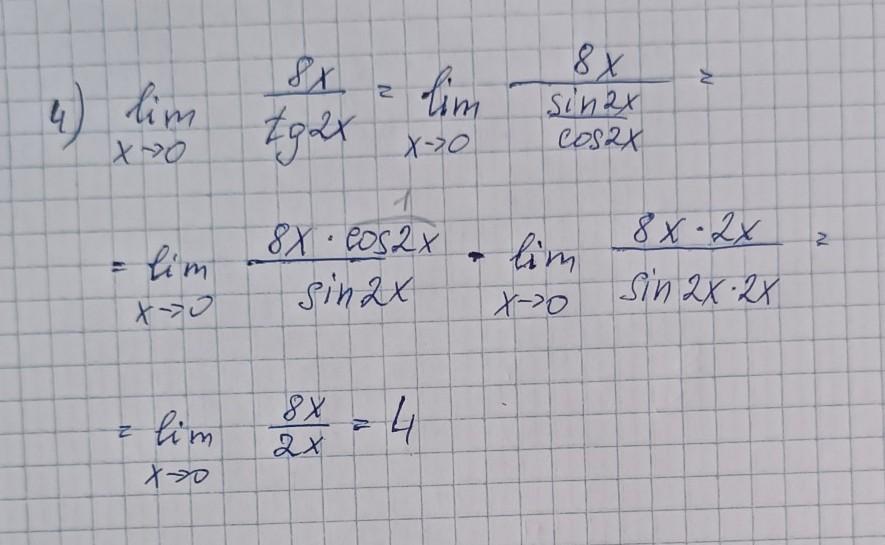 4) lim x→0 8x / tg2x = lim x→0 8x / (sin2x / cos2x) =
= lim x→0 8x · cos2x / sin2x = lim x→0 8x · 2x / sin2x · 2x =
1
= lim x→0 8x / 2x = 4